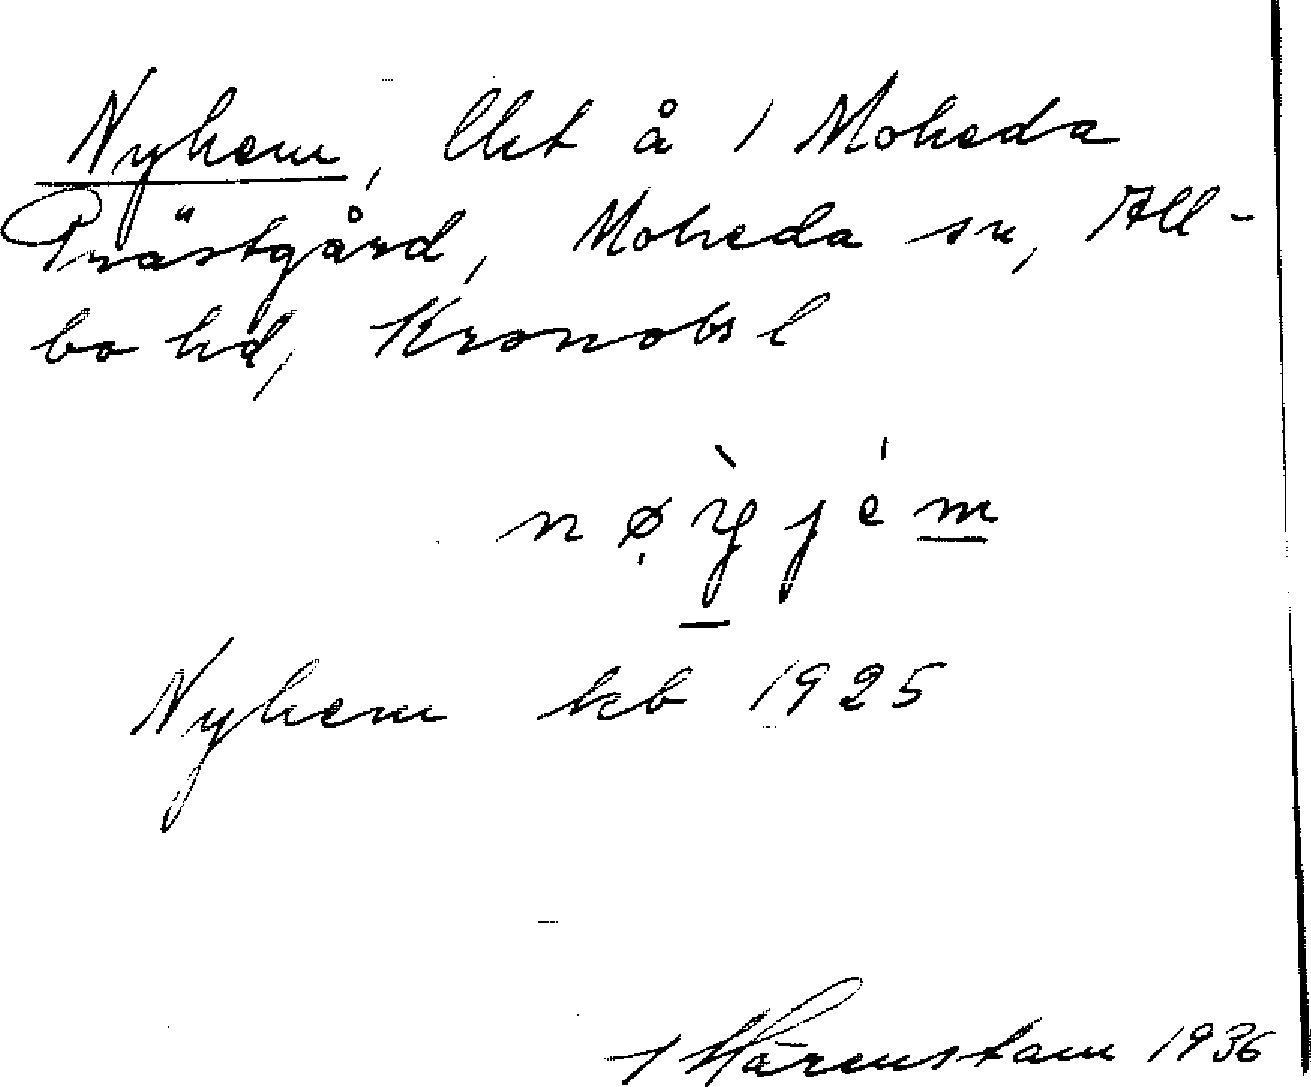 Nyhem, lht å 1 Moheda
Prästgård, Moheda sn, All-
bo hd, Kronobs l
nø̣̀yjém
Nyhem kb 1925
Härenstam 1936